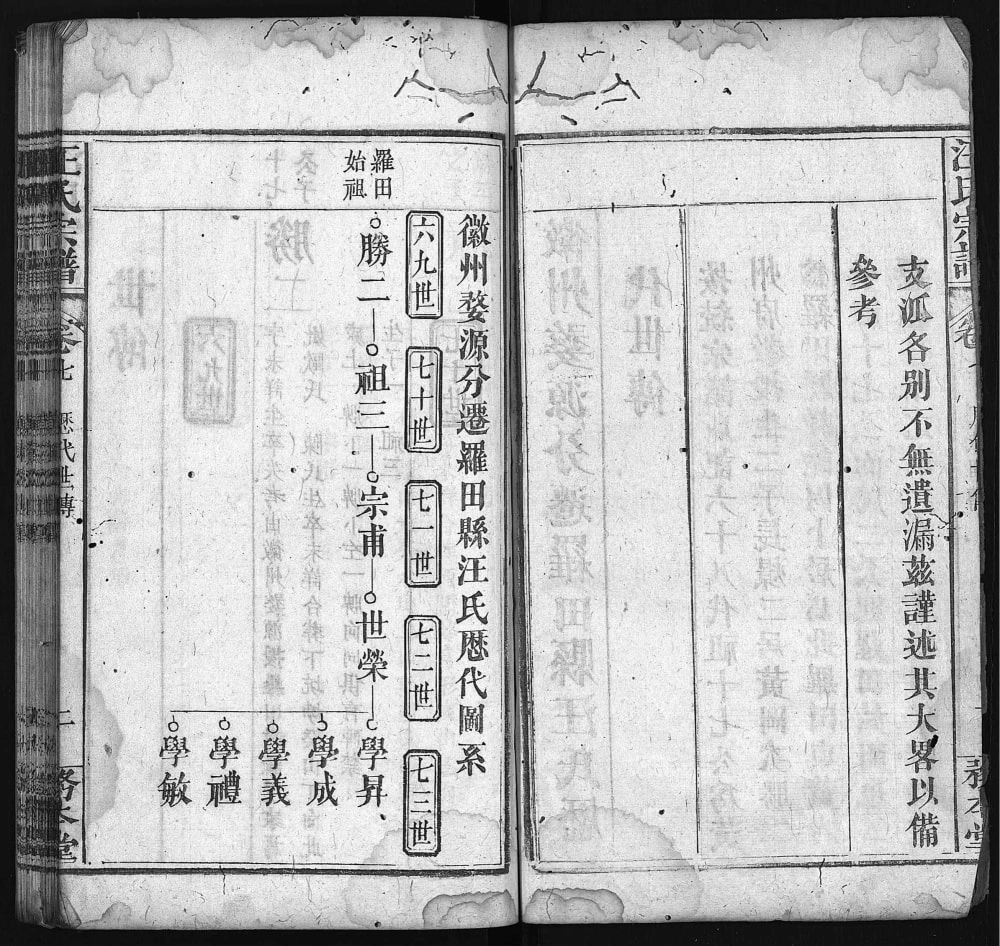 汪氏宗譜
支派各別不無遺漏茲謹述其大畧以備
參考
徽州婺源分遷羅田縣汪氏歷代圖系
六九世
七十世
七一世
七二世
七三世
羅田
始祖
勝二
祖三
宗甫
世榮
學昇
學成
學義
學禮
學敏
汪氏宗譜
卷七
歷代世傳
二
務本堂